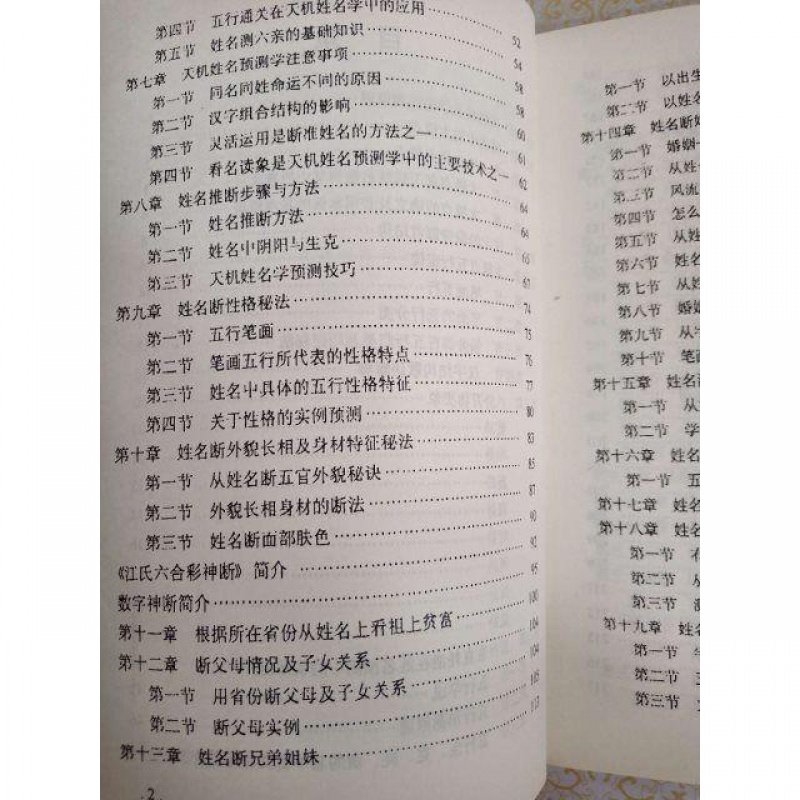 第四节 五行通关在天机姓名学中的应用 52
第五节 姓名测六亲的基础知识 54
第七章 天机姓名预测学注意事项 58
第一节 同名同姓命运不同的原因 58
第二节 汉字组合结构的影响 60
第三节 灵活运用是断准姓名的方法之一 61
第四节 看名读象是天机姓名预测学中的主要技术之一 62
第八章 姓名推断步骤与方法 64
第一节 姓名推断方法 64
第二节 姓名中阴阳与生克 66
第三节 天机姓名学预测技巧 67
第九章 姓名断性格秘法 74
第一节 五行笔画 75
第二节 笔画五行所代表的性格特点 76
第三节 姓名中具体的五行性格特征 77
第四节 关于性格的实例预测 80
第十章 姓名断外貌长相及身材特征秘法 83
第一节 从姓名断五官外貌秘诀 85
第二节 外貌长相身材的断法 87
第三节 姓名断面部肤色 90
《江氏六合彩神断》简介 92
数字神断简介 95
第十一章 根据所在省份从姓名上看祖上贫富 100
第十二章 断父母情况及子女关系 104
第一节 用省份断父母及子女关系 104
第二节 断父母实例 105
第十三章 姓名断兄弟姐妹 113
. 2 .
第一节 以出生
第二节 以姓名
第十四章 姓名断
第一节 婚姻
第二节 从姓
第三节 风流
第四节 怎么
第五节 从姓
第六节 姓名
第七节 从姓
第八节 婚姻
第九节 从
第十节 笔画
第十五章 姓名
第一节 从
第二节 学
第十六章 姓名
第一节 五
第十七章 姓名
第十八章 姓名
第一节
第二节 从
第三节 测
第十九章 姓名
第一节
第二节
第三节